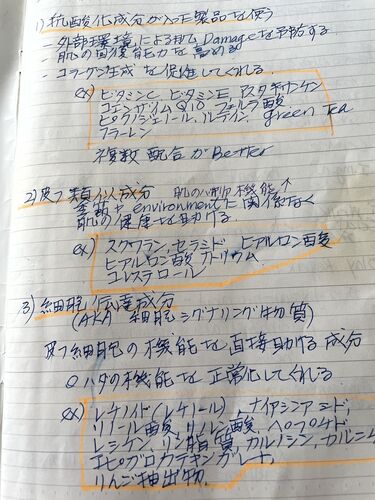 1) 抗酸化成分が入った製品を使う
- 外部環境による肌Damageを予防する
- 肌の回復能力を高める
- コラーゲン生成を促進してくれる.
ex) ビタミンC, ビタミンE, アスタキサンチン
コエンザイムQ10 フェルラ酸
ピクノジェノール, ルテイン, green Tea
フラーレン
複数配合がBetter
2) 皮フ類似成分 肌の 機能↑
年齢やenvironmentに関係なく
肌の健康を助ける
ex) スクワラン, セラミド ヒアルロン酸
ヒアルロン酸ナトリウム
コレステロール
3) 細胞伝達成分
(AKA 細胞シグナリング物質)
皮フ細胞の機能を直接助ける成分
ハダの機能を正常化してくれる
ex) レチノイド(レチノール) ナイアシンアミド,
リノール酸, リノレン酸, ペプチド
レシチン, リン脂質, カルノシン,
エピガロカテキンガレート,
りんご抽出物,